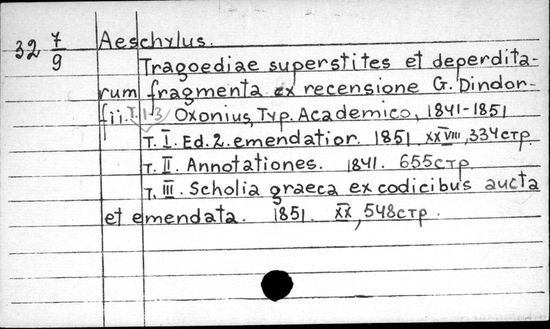 32 7/9 Aeschylus.
Tragoediae superstites et deperdita-
rum fragmenta ex recensione G. Dindor-
fii. T. 1-3 Oxonius, Typ. Academico, 1841-1851
т. I. Ed. 2. emendatior. 1851. XXVIII, 334стр.
т. II. Annotationes. 1841. 655стр
т. III. Scholia graeca ex codicibus aucta
et emendata. 1851. XX, 548стр.